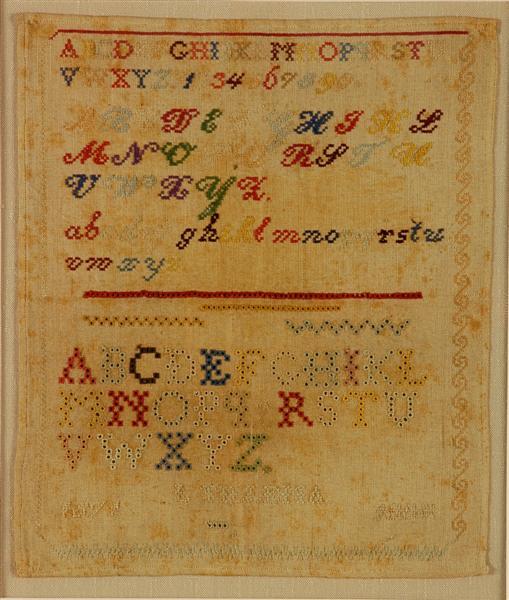 ABCDEFGHIKLMNOPQRST
VWXYZ.1234567890
ABCDEFGHIKL
MNOPQRSTU
VWXYZ.
abcdefghiklmnopqrstu
vwxyz
ABCDEFGHIKL
MNOPQRSTU
VWXYZ.